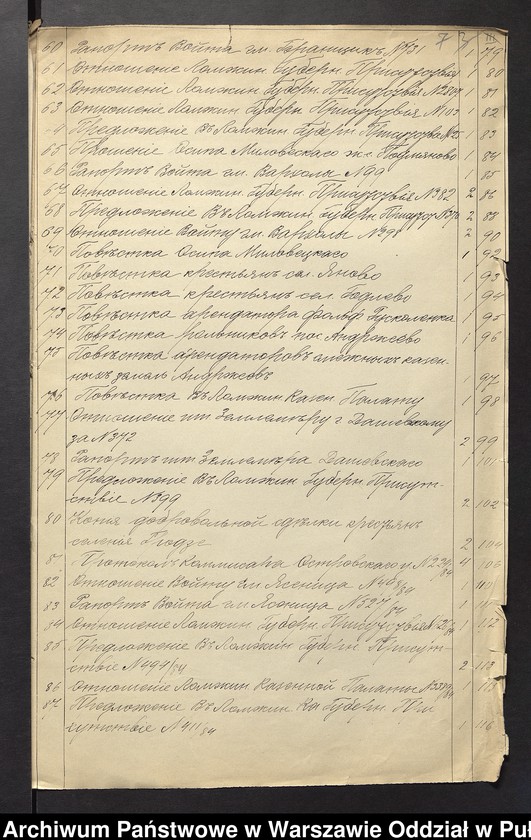 7 2 III
60 Рапортъ Войта гм. №731 1 79
61 Отношеніе Ломжин Губерн. Присутствія 1 80
62 Отношеніе Ломжин Губерн. Присутствія 1 81
63 Отношеніе Ломжин Губерн. Присутствія №103 1 82
Предложеніе Въ Ломжин Губерн Присутствіе 1 83
65 Прошеніе Осипа Миловецкаго 1 84
66 Рапортъ Войта гм. №90 1 85
67 Отношеніе Ломжин. Губерн. Присутствія №382 2 86
68 Предложеніе Въ Ломжин Губерн 2 88
69 Отношеніе Войту гм. 2 90
70 Повѣстка Осипа Миловецкаго 1 92
71 Повѣстка крестьянъ сел. Яново 1 93
72 Повѣстка крестьянъ сел. Годлево 1 94
73 Повѣстка арендатора фольв 1 95
74 Повѣстка рольниковъ пос. Андржеево 1 96
75 Повѣстка арендаторовъ казен
ныхъ земель 1 97
76 Повѣстка Въ Ломжин Казен. Палату 1 98
77 Отношеніе шт Землемѣру г. Дашевскому
за №372 2 99
78 Рапортъ шт Землемѣра Дашевскаго 1 101
79 Предложеніе Въ Ломжин Губерн Присут-
ствіе №399 2 102
80 Копія добровольной сдѣлки крестьян
селенія 2 104
81 Протоколъ Коммисара Островскаго у. 4 106
82 Отношеніе Войту гм Ясеница 1 110
83 Рапортъ Войта гм Ясеница №527/84 1 111
84 Отношеніе Ломжин Губерн. Присутствія 1 112
85 Предложеніе Въ Ломжин Губерн Присут-
ствіе №494/84 2 113
86 Отношеніе Ломжин Казенной Палаты 1 115
87 Предложеніе Въ Ломжин Губерн. При
сутствіе №411/84 1 116
Archiwum Państwowe w Warszawie Oddział w Pu